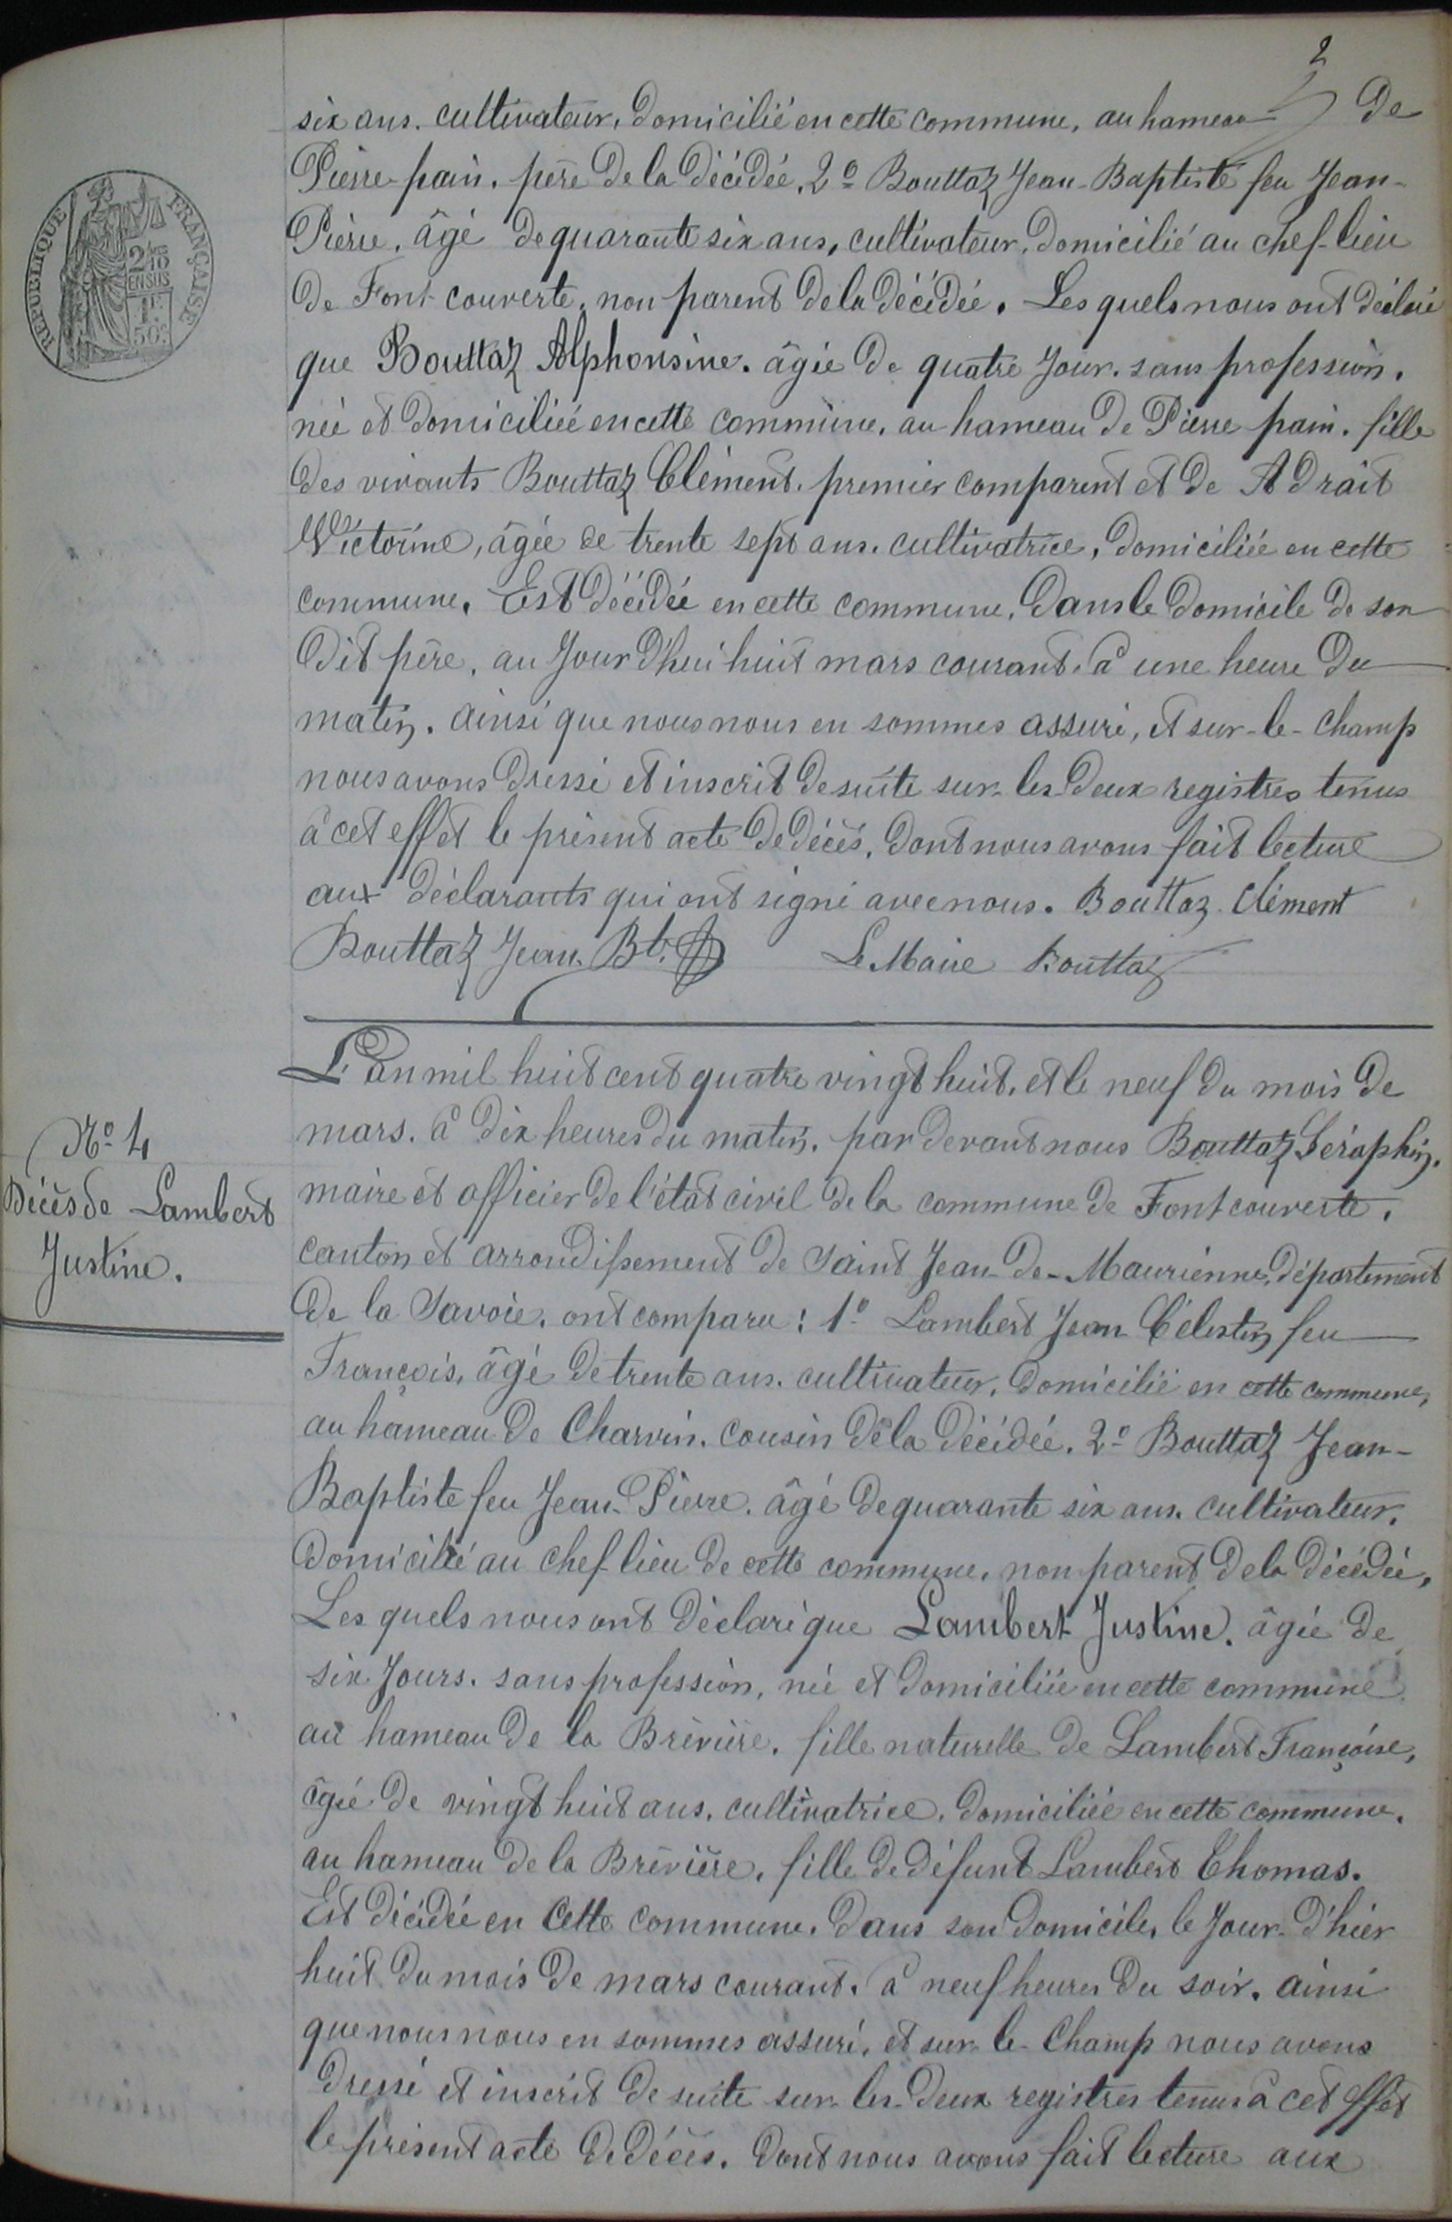 2
six ans. cultivateur, domicilié en cette commune, au hameau de
Pierre-pain. père de la décédée, 2º Bouttaz Jean-Baptiste feu Jean-
Pierre, âgé de quarante six ans, cultivateur, domicilié au chef-lieu
de Font-couverte, non parent de la décédée. Les quels nous ont déclaré
que Bouttaz Alphonsine. âgée de quatre Jour. sans profession.
née et domiciliée en cette commune, au hameau de Pierre pain. fille
des vivants Bouttaz Clément. premier comparent et de Adrait
Victorine, âgée de trente sept ans. cultivatrice, domiciliée en cette
commune. Est décédée en cette commune, dans le domicile de son
dit père, au Jour d'hui huit mars courant. à une heure du
matin. ainsi que nous nous en sommes assuré, et sur-le-champ
nous avons dressé et inscrit de suite sur les deux registres tenus
à cet effet le présent acte de décès, dont nous avons fait lecture
aux déclarants qui ont signé avec nous. Bouttaz Clément
Bouttaz Jean Bt. Le Maire Bouttaz
L'an mil huit cent quatre vingt huit, et le neuf du mois de
mars. à dix heures du matin. par devant nous Bouttaz Séraphin.
maire et officier de l'état civil de la commune de Fontcouverte.
canton et arrondissement de Saint Jean-de-Maurienne, département
de la Savoie, ont comparu : 1º Lambert Jean Célestin feu
François, âgé de trente ans. cultivateur, domicilié en cette commune,
au hameau de Charvin. cousin de la décédée. 2º Bouttaz Jean-
Baptiste feu Jean-Pierre. âgé de quarante six ans. cultivateur.
domicilié au chef lieu de cette commune, non parent de la décédée,
Les quels nous ont déclaré que Lambert Justine. âgée de
six Jours. sans profession, née et domiciliée en cette commune
au hameau de la Brévière. fille naturelle de Lambert Françoise,
âgée de vingt huit ans. cultivatrice, domiciliée en cette commune.
au hameau de la Brévière, fille de défunt Lambert Thomas.
Est décédée en cette commune. dans son domicile, le Jour d'hier
huit du mois de mars courant. à neuf heures du soir. ainsi
que nous nous en sommes assuré, et sur-le-champ nous avons
dressé et inscrit de suite sur les deux registres tenus à cet effet
le présent acte de décès. dont nous avons fait lecture aux
Nº 4
Décès de Lambert
Justine.
REPUBLIQUE FRANÇAISE
2/10
EN SUS
1F
50c